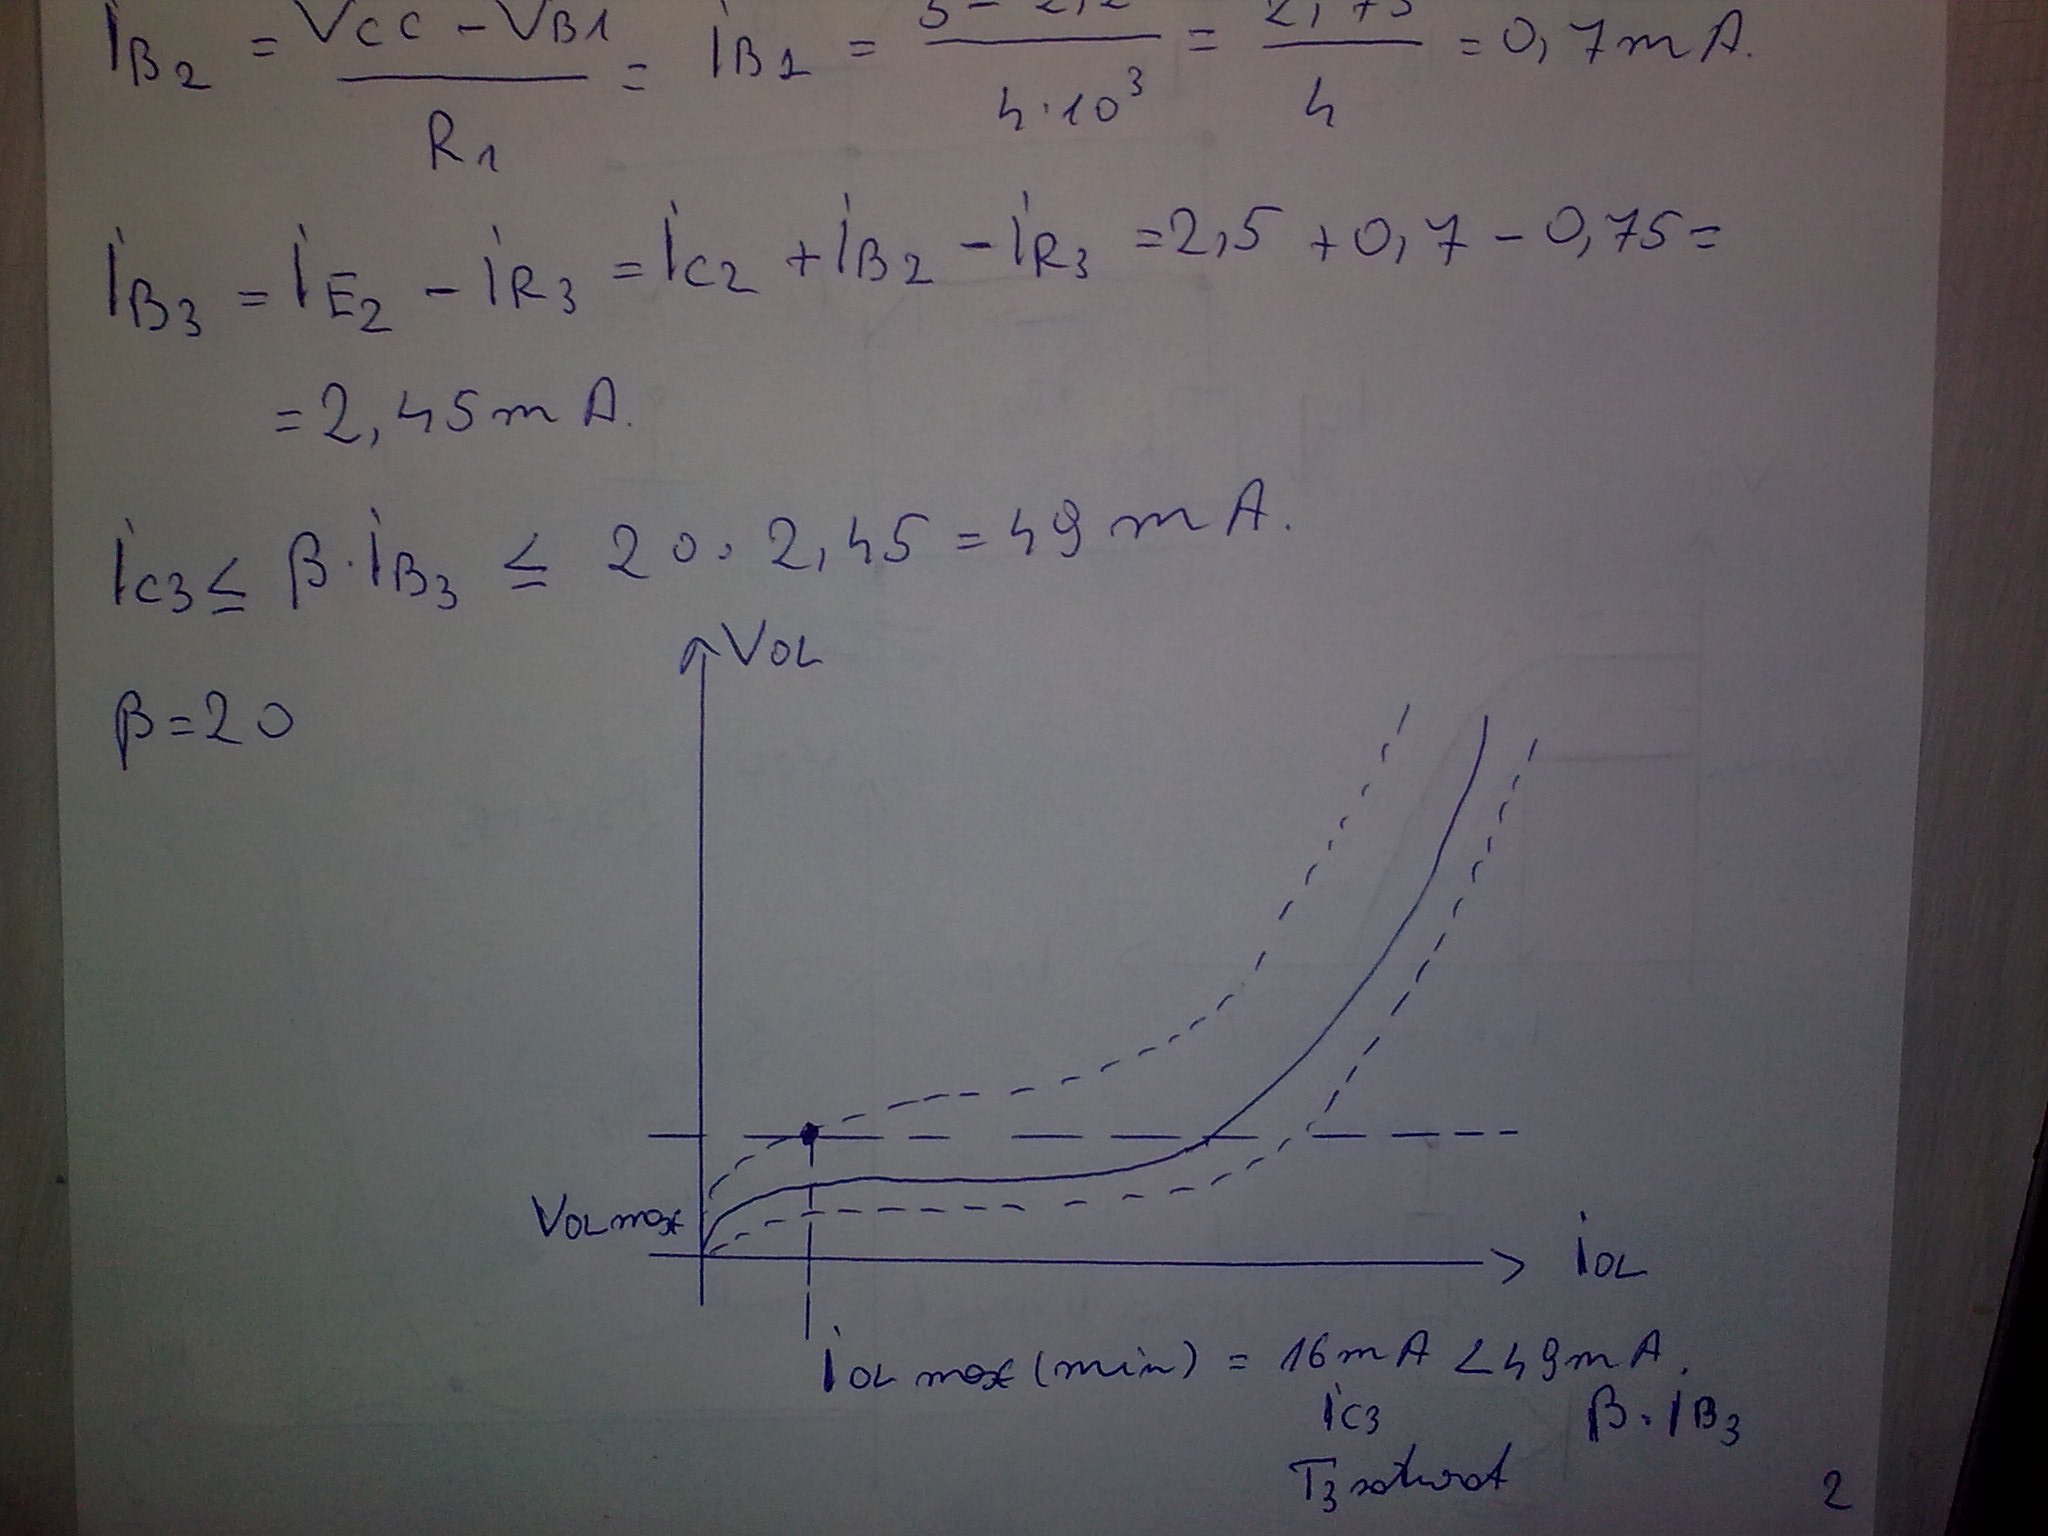 iB2 = VCC - VB1 / R1 = iB1 = 5 - 2,2 / 4·10³ = 2,75 / 4 = 0,7mA.
iB3 = iE2 - iR3 = iC2 + iB2 - iR3 = 2,5 + 0,7 - 0,75 =
= 2,45mA.
iC3 ≤ β·iB3 ≤ 20·2,45 = 49mA.
VOL
β=20
VOLmax
iOL
iOL max (min) = 16mA < 49mA.
iC3 β·iB3
T3 saturat
2